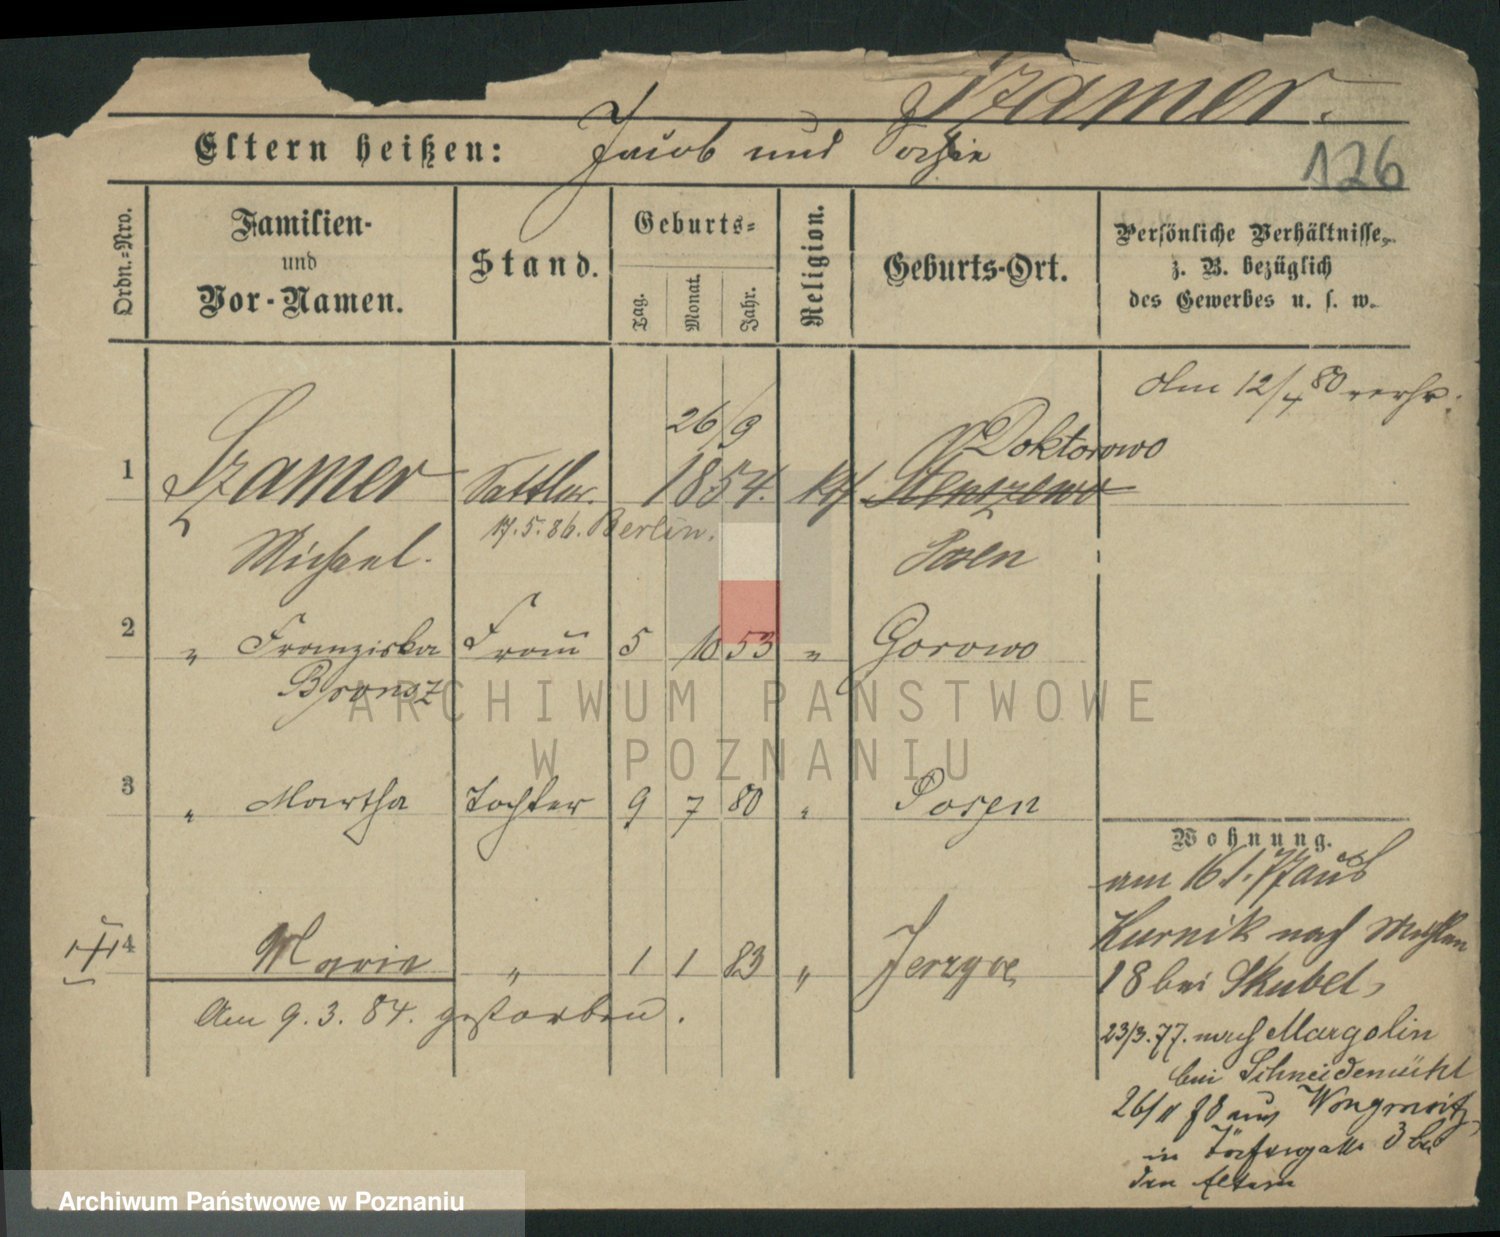 Szamer.
126
Eltern heißen: Jacob und Sophie
Ordn.-Nro.
Familien- und Vor-Namen.
Stand.
Geburts-
Tag.
Monat.
Jahr.
Religion.
Geburts-Ort.
Persönliche Verhältnisse,
z. B. bezüglich
des Gewerbes u. s. w.
Am 12/4 80 verh:
26/9
Doktorowo
1 Szamer Sattler. 1854. kth Stenszewo
17.5.86. Berlin.
Michael. Posen
2 " Franziska Frau 5 10 53 " Gorowo
Bronsz
3 " Martha Tochter 9 7 80 " Posen
4 Marie " 1 1 83 " Jerzyce
Am 9.3.84. gestorben.
Wohnung.
am 16/1.77 aus
Kurnik nach
18 bei Skubel,
23/3.77. nach Margolin
bei Schneidemühl
26/11 78 aus Wongrowitz,
in 3 bei
den Eltern
ARCHIWUM PAŃSTWOWE
W POZNANIU
Archiwum Państwowe w Poznaniu